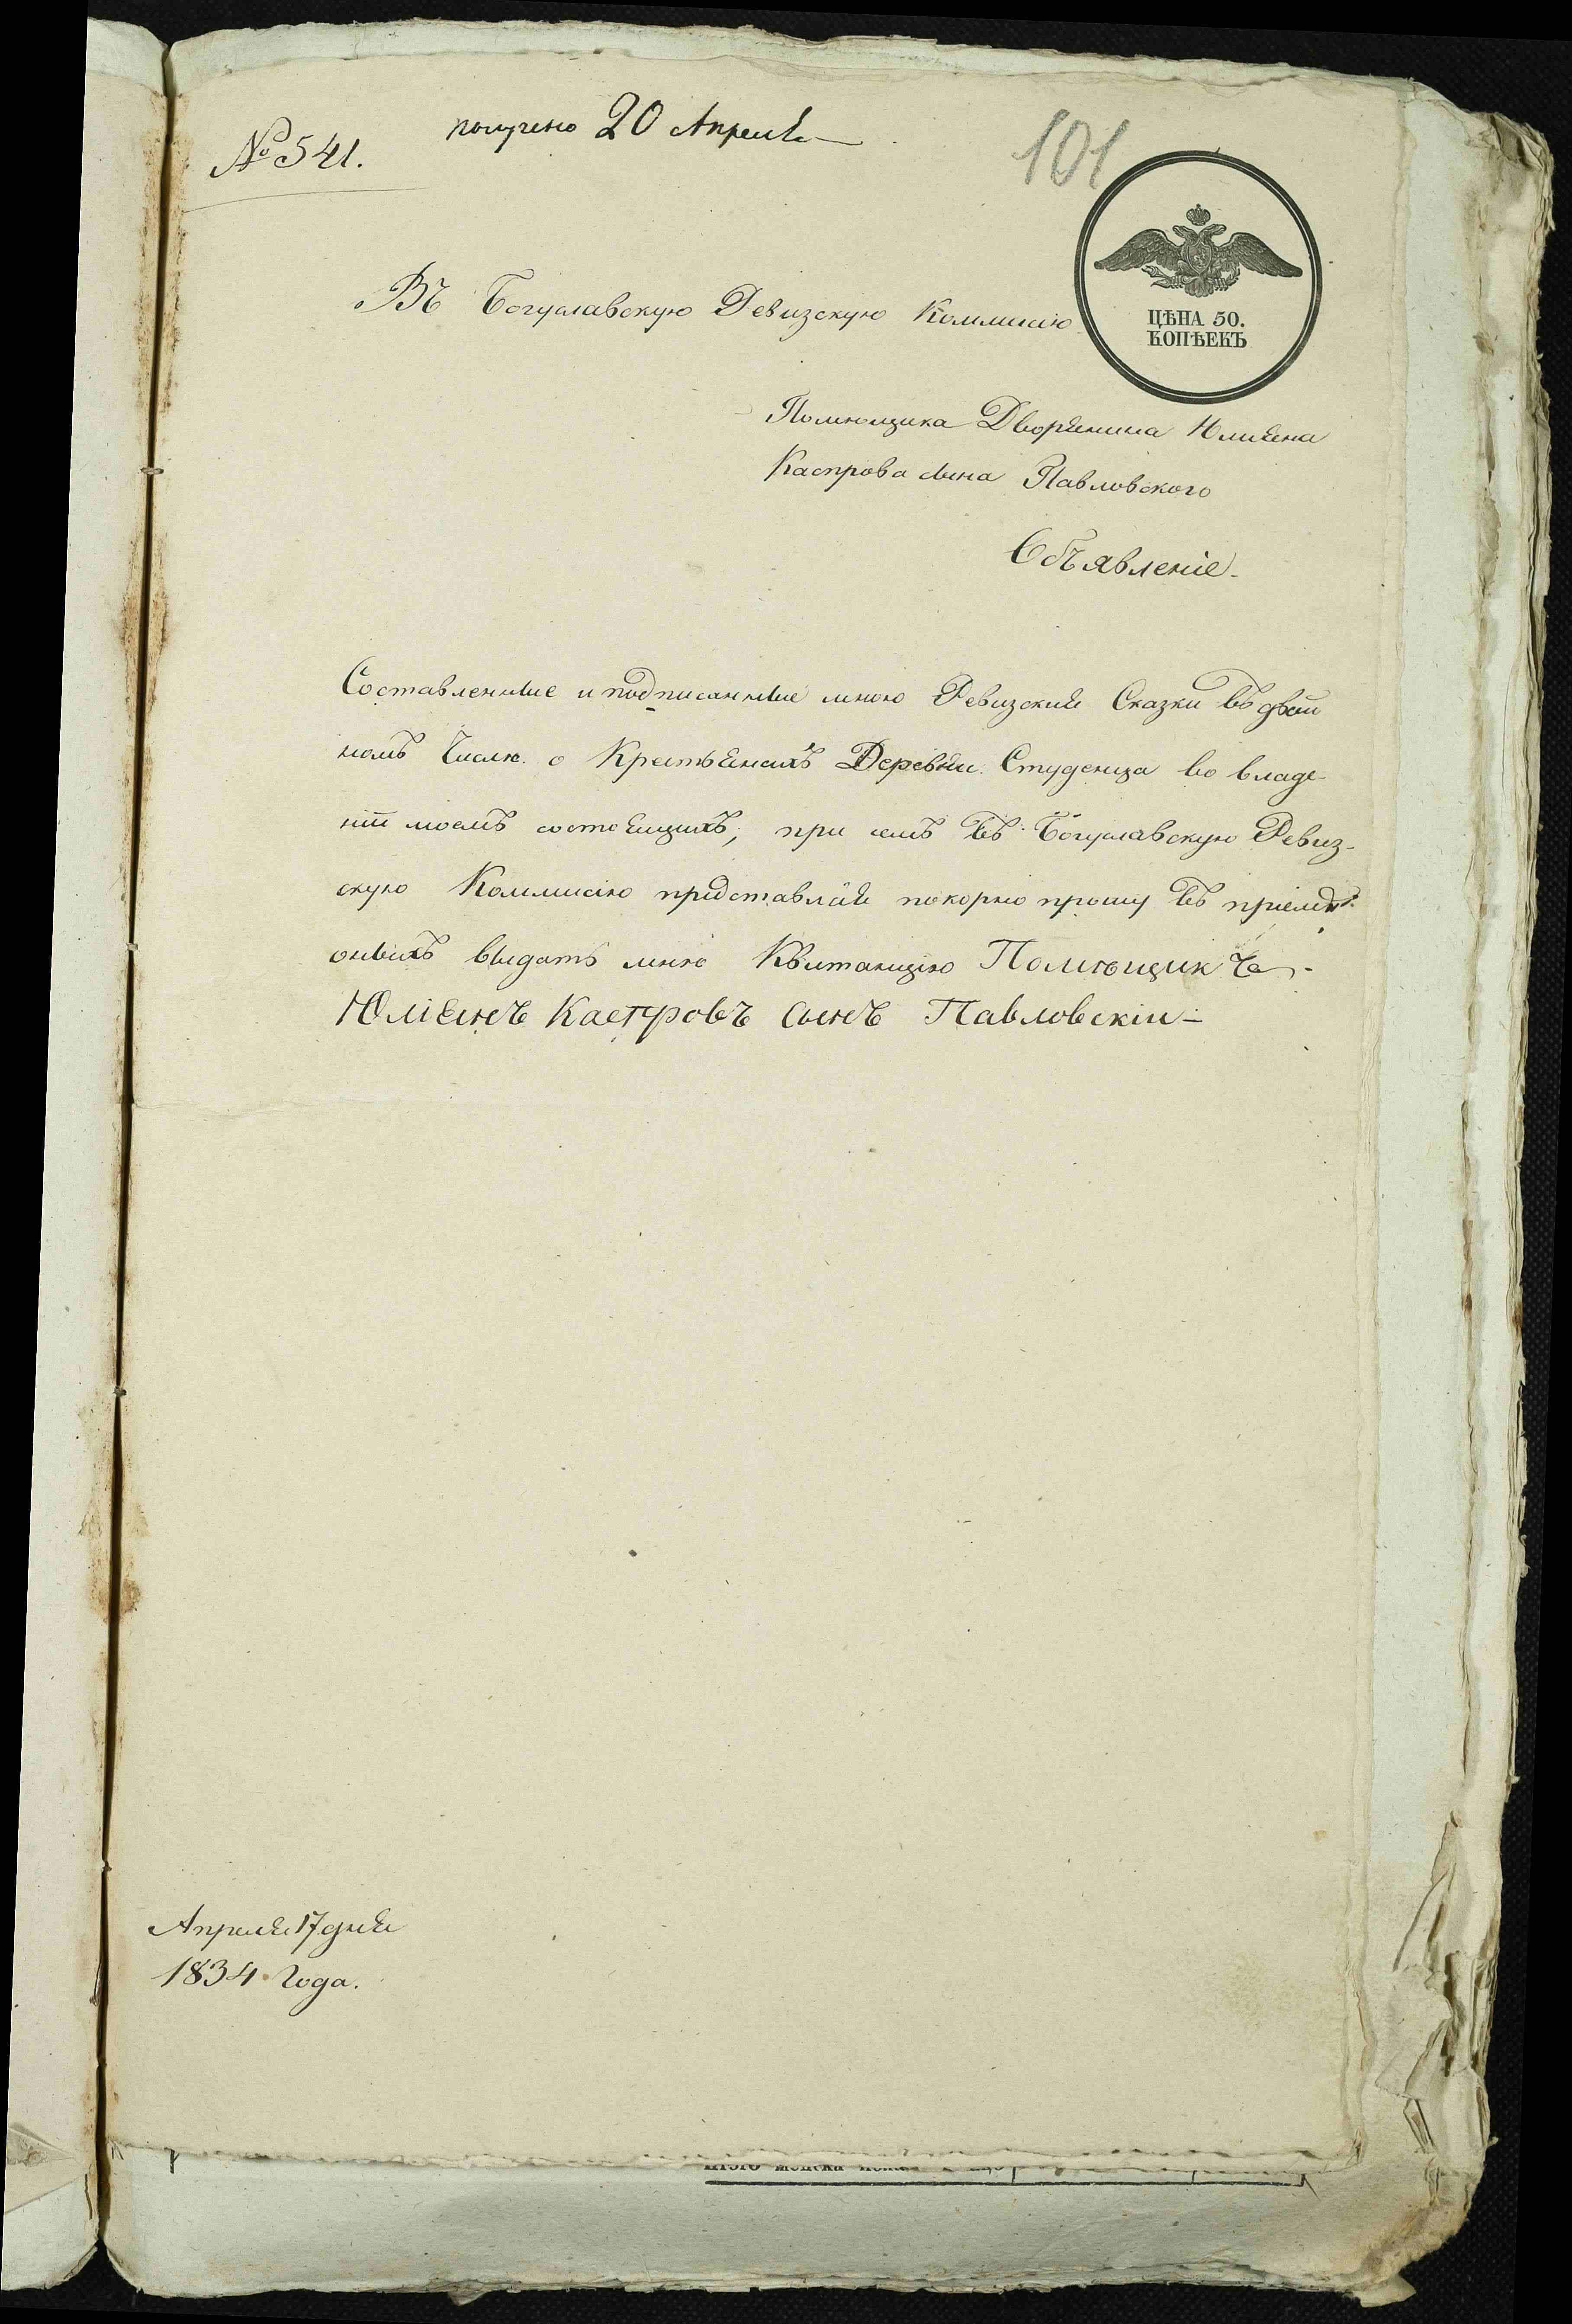 № 541.
получено 20 Апреля
101
ЦѢНА 50.
КОПѢЕКЪ
Въ Богуславскую Ревизскую Коммисію
Помѣщика Дворянина Юлияна
Каспрова сына Павловского
Объявленіе.
Составленные и подписанные мною Ревизския Сказки въ двой
номъ Числѣ о Крестьянахъ Деревни Студенца во владе
ніи моемъ состоящихъ, при семъ въ Богуславскую Ревиз-
скую Коммисію представляя покорно прошу въ пріемѣ
оныхъ выдать мнѣ Квитанцію Помѣщикъ
Юліянъ Каспровъ сынъ Павловскіи
Апреля 17 дня
1834 Года.